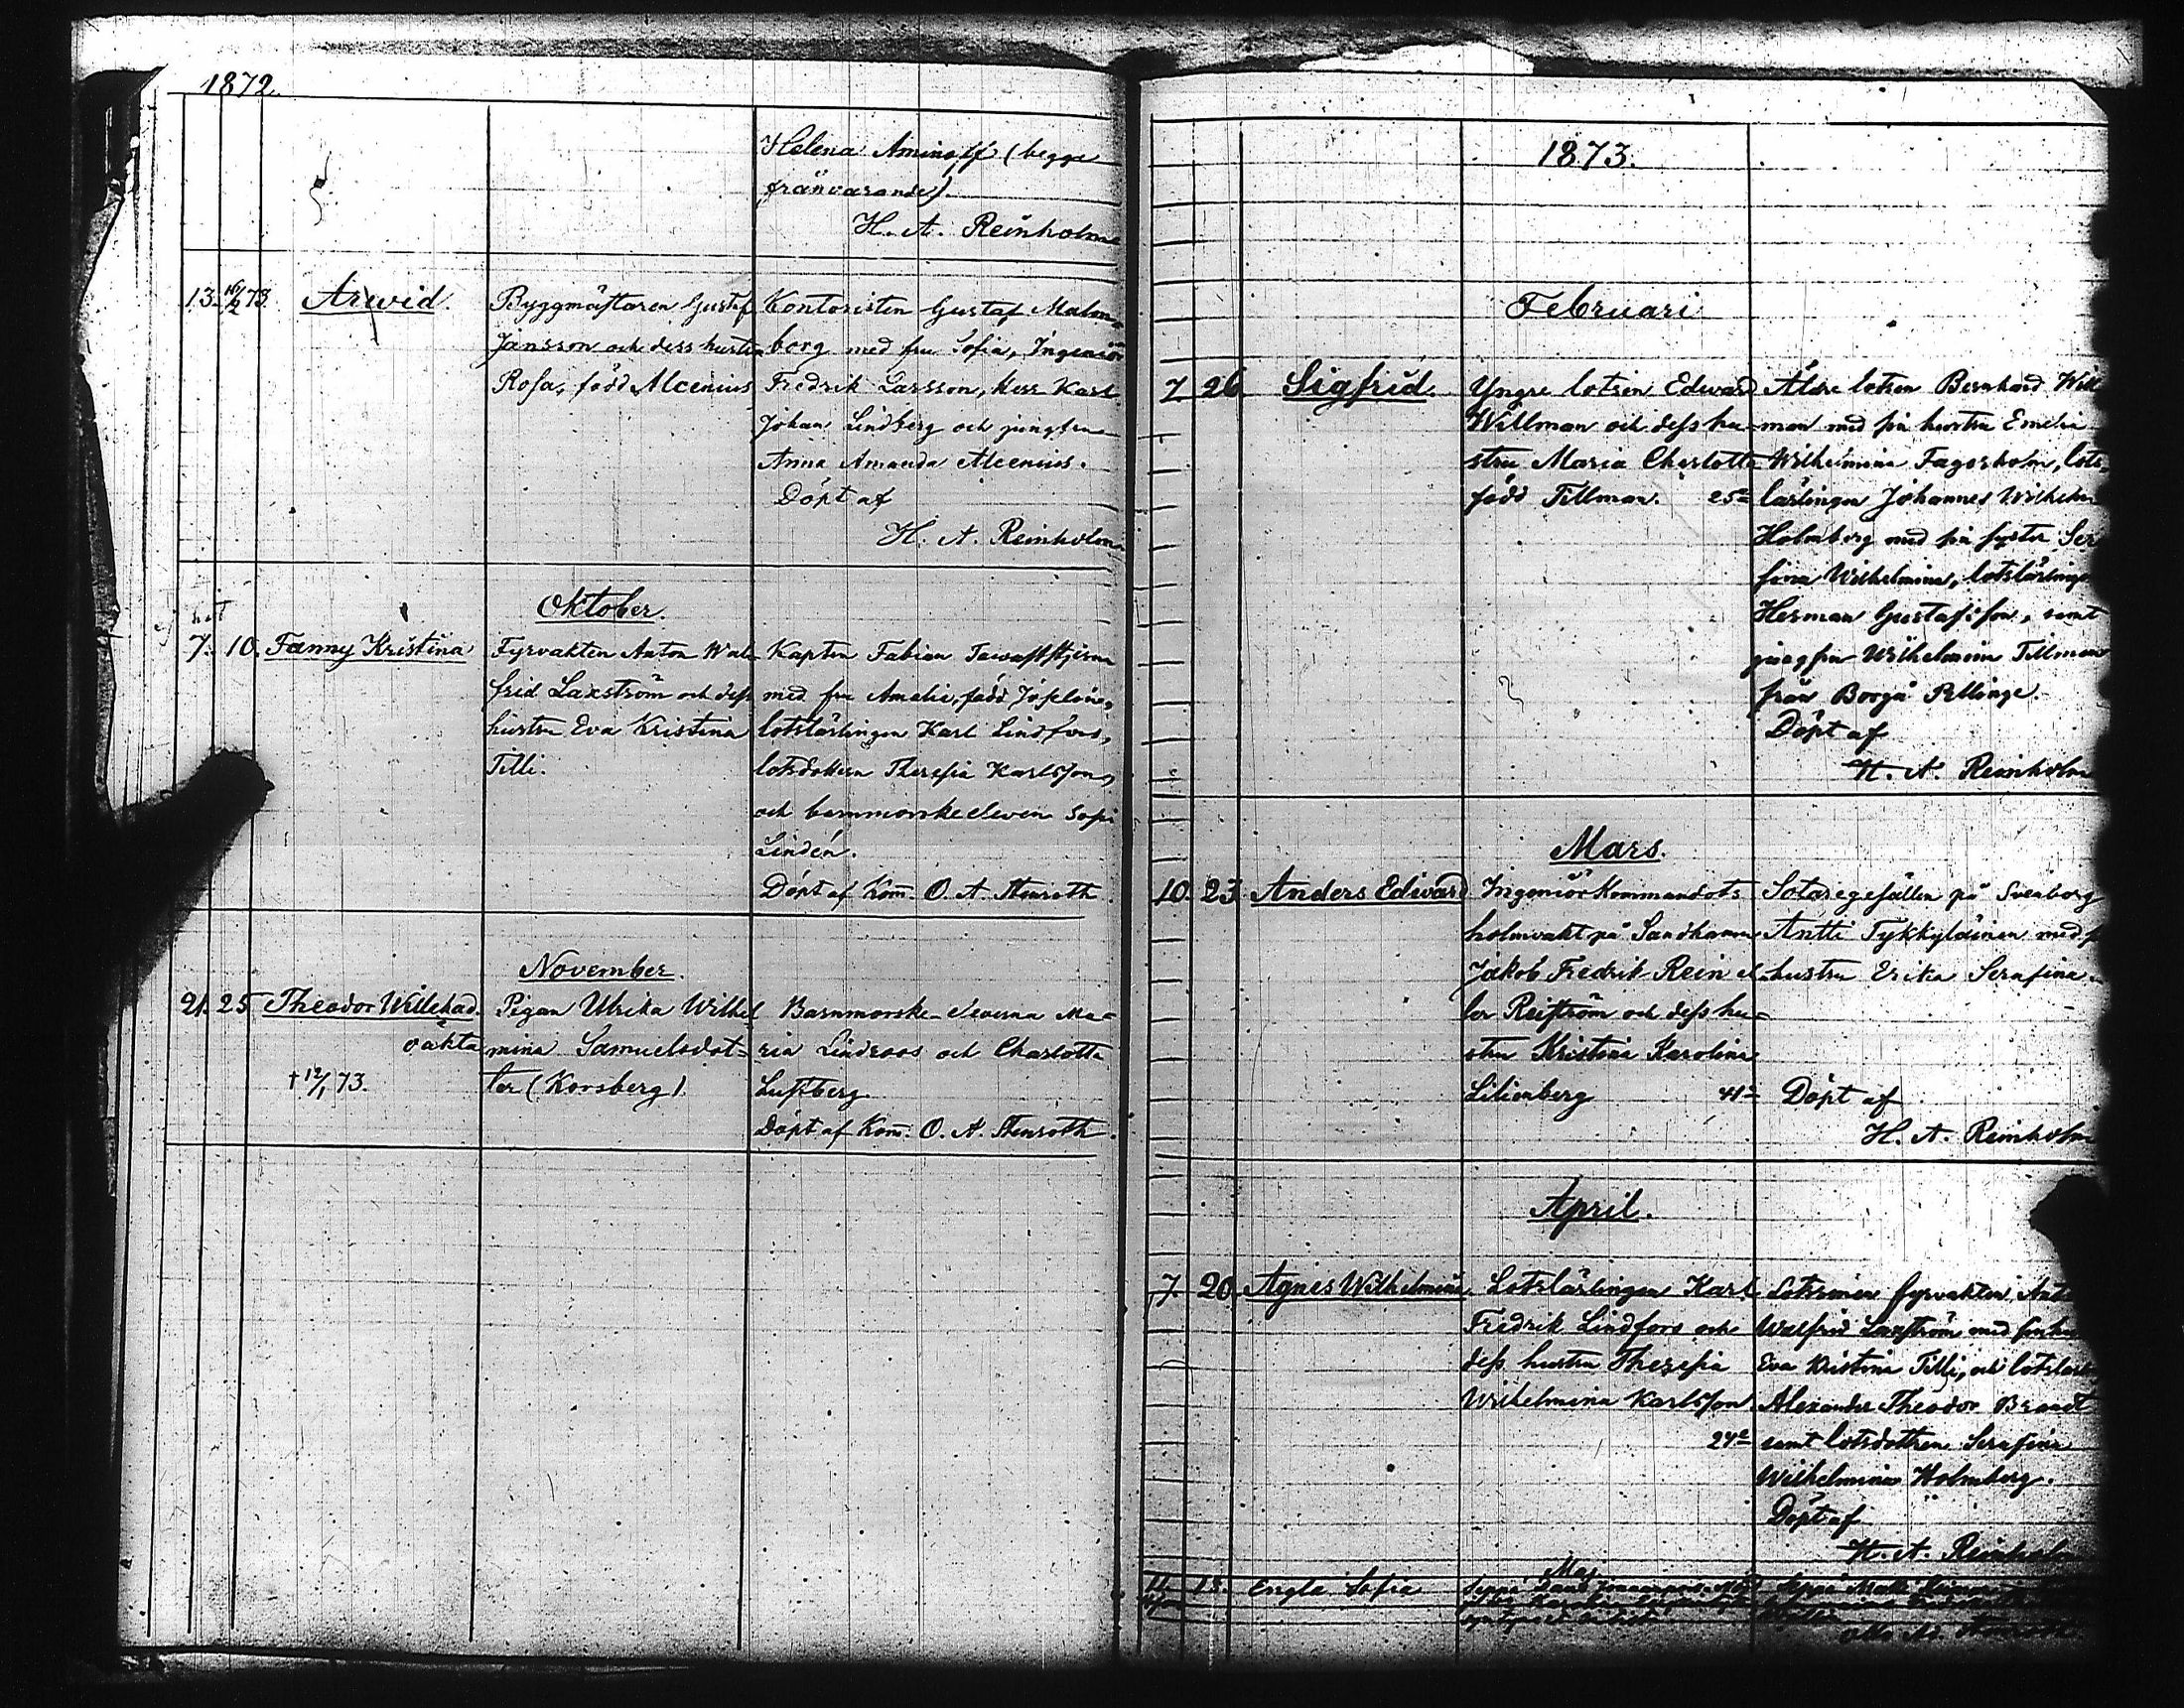 1872.
Helena Aminoff (begge
frånvarande).
H. A. Reinholm
13. 16/2 73. Arwid.
Byggmästaren Gustaf
Jansson och dess hustru
Rosa, född Alcenius
Kontoristen Gustaf Malm-
borg med fru Sofia, Ingeniör
Fredrik Larsson, Herr Karl
Johan Lindberg och jungfrun
Anna Amanda Alcenius.
Döpt af
H. A. Reinholm
Oktober.
7. 10. Fanny Kristina
Fyrvakten Anton Wal
frid Laxström och dess
hustru Eva Kristina
Tilli.
Kapten Fabian Tawaststjerna
med fru Amalie, född
lotslärlingen Karl Lindfors,
lotsdottern Theresia Karlsson,
och barnmorskeeleven Sofi
Lindén.
Döpt af Kom. O. A. Stenroth.
November.
21. 25 Theodor Willehad.
oäkta
† 12/1 73.
Pigan Ulrika Wilhel
mina Samuelsdot-
ter (Korsberg).
Barnmorske-eleverna Ma-
ria Lindroos och Charlotta
Luftberg
Döpt af Kom. O. A. Stenroth.
1873.
Februari
7 26 Sigfrid.
Yngre lotsen Edward
Willman och dess hu-
stru Maria Charlotta
född Tillman. 25
Äldre lotsen Bernhard Will
man med sin hustru Emelie
Wilhelmina Fagerholm, lots-
lärlingen Johannes Wilhelm
Holmberg med sin syster Ser
fina Wilhelmina, lotslärlinge
Herman Gustafsson, samt
jungfru Wilhelmina Tillman
från Borgå Pellinge.
Döpt af
H. A. Reinholm
Mars.
10. 23. Anders Edward
Ingeniör Kommandots
holmvakt på Sandhamn
Jakob Fredrik Rein el
ler Reiström och dess hu-
stru Kristina Karolina
Lilienberg 41
Sotaregesällen på Sveaborg
Antti Tykkyläinen med
hustru Erika Serafina
Döpt af
H. A. Reinholm
April.
7. 20 Agnes Wilhelmina
Lotslärlingen Karl
Fredrik Lindfors och
dess hustru Theresia
Wilhelmina Karlsson.
24
fyrvakten Anto
Walfrid Laxström med
Eva Kristina Tilli, och
Alexander Theodor Brandt
samt lotsdottren Serafina
Wilhelmina Holmberg.
Döpt af
H. A. Reinholm
Maj
11. 15. Engla Sofia